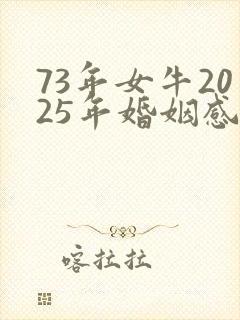 73年女牛20
25年婚姻感
喀拉拉